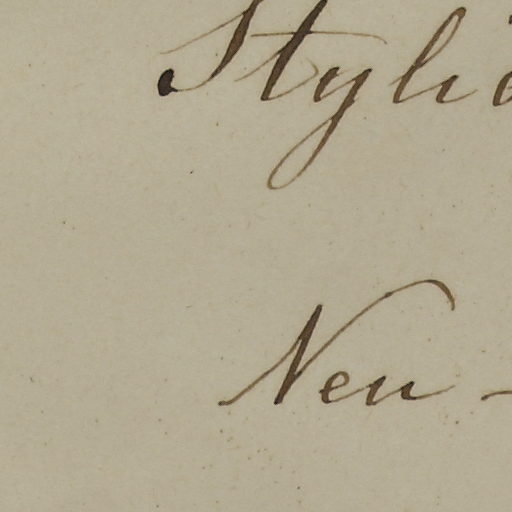 Styli
Neu -